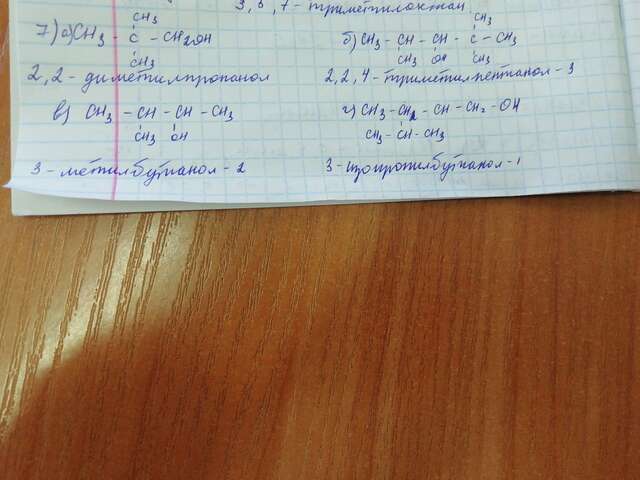 3, 6, 7 - триметилоктан
CH3 CH3
7) а) CH3 - C - CH2OH б) CH3 - CH - CH - C - CH3
CH3 CH3 OH CH3
2,2 - диметилпропанол 2,2,4 - триметилпентанол - 3
в) CH3 - CH - CH - CH3 г) CH3 - CH2 - CH - CH2 - OH
CH3 OH CH3 - CH - CH3
3 - метилбутанол - 2 3 - изопропилбутанол - 1